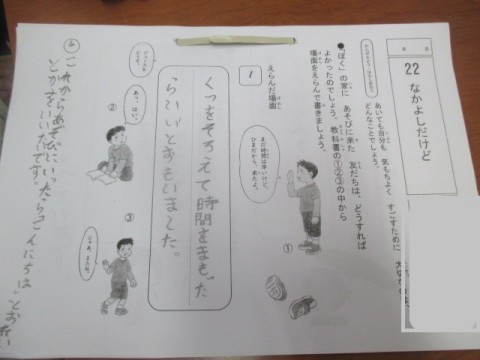 22 なかよしだけど
あいても自分も 気もちよく すごすために
どんなことでしょう。
「ぼく」の家に あそびに来た 友だちは、どうすれば
よかったのでしょう。教科書の①②③の中から
場面をえらんで書きましょう。
えらんだ場面
1
まだ時間は早いけど、
ひまだから、来たよ。
①
くつをそろえて時間をまもった
らいいとおもいました。
ジュースを
どうぞ。
あっ、はい。
②
じゃあ、またね。
③
これからあそびにいったらこんにちは